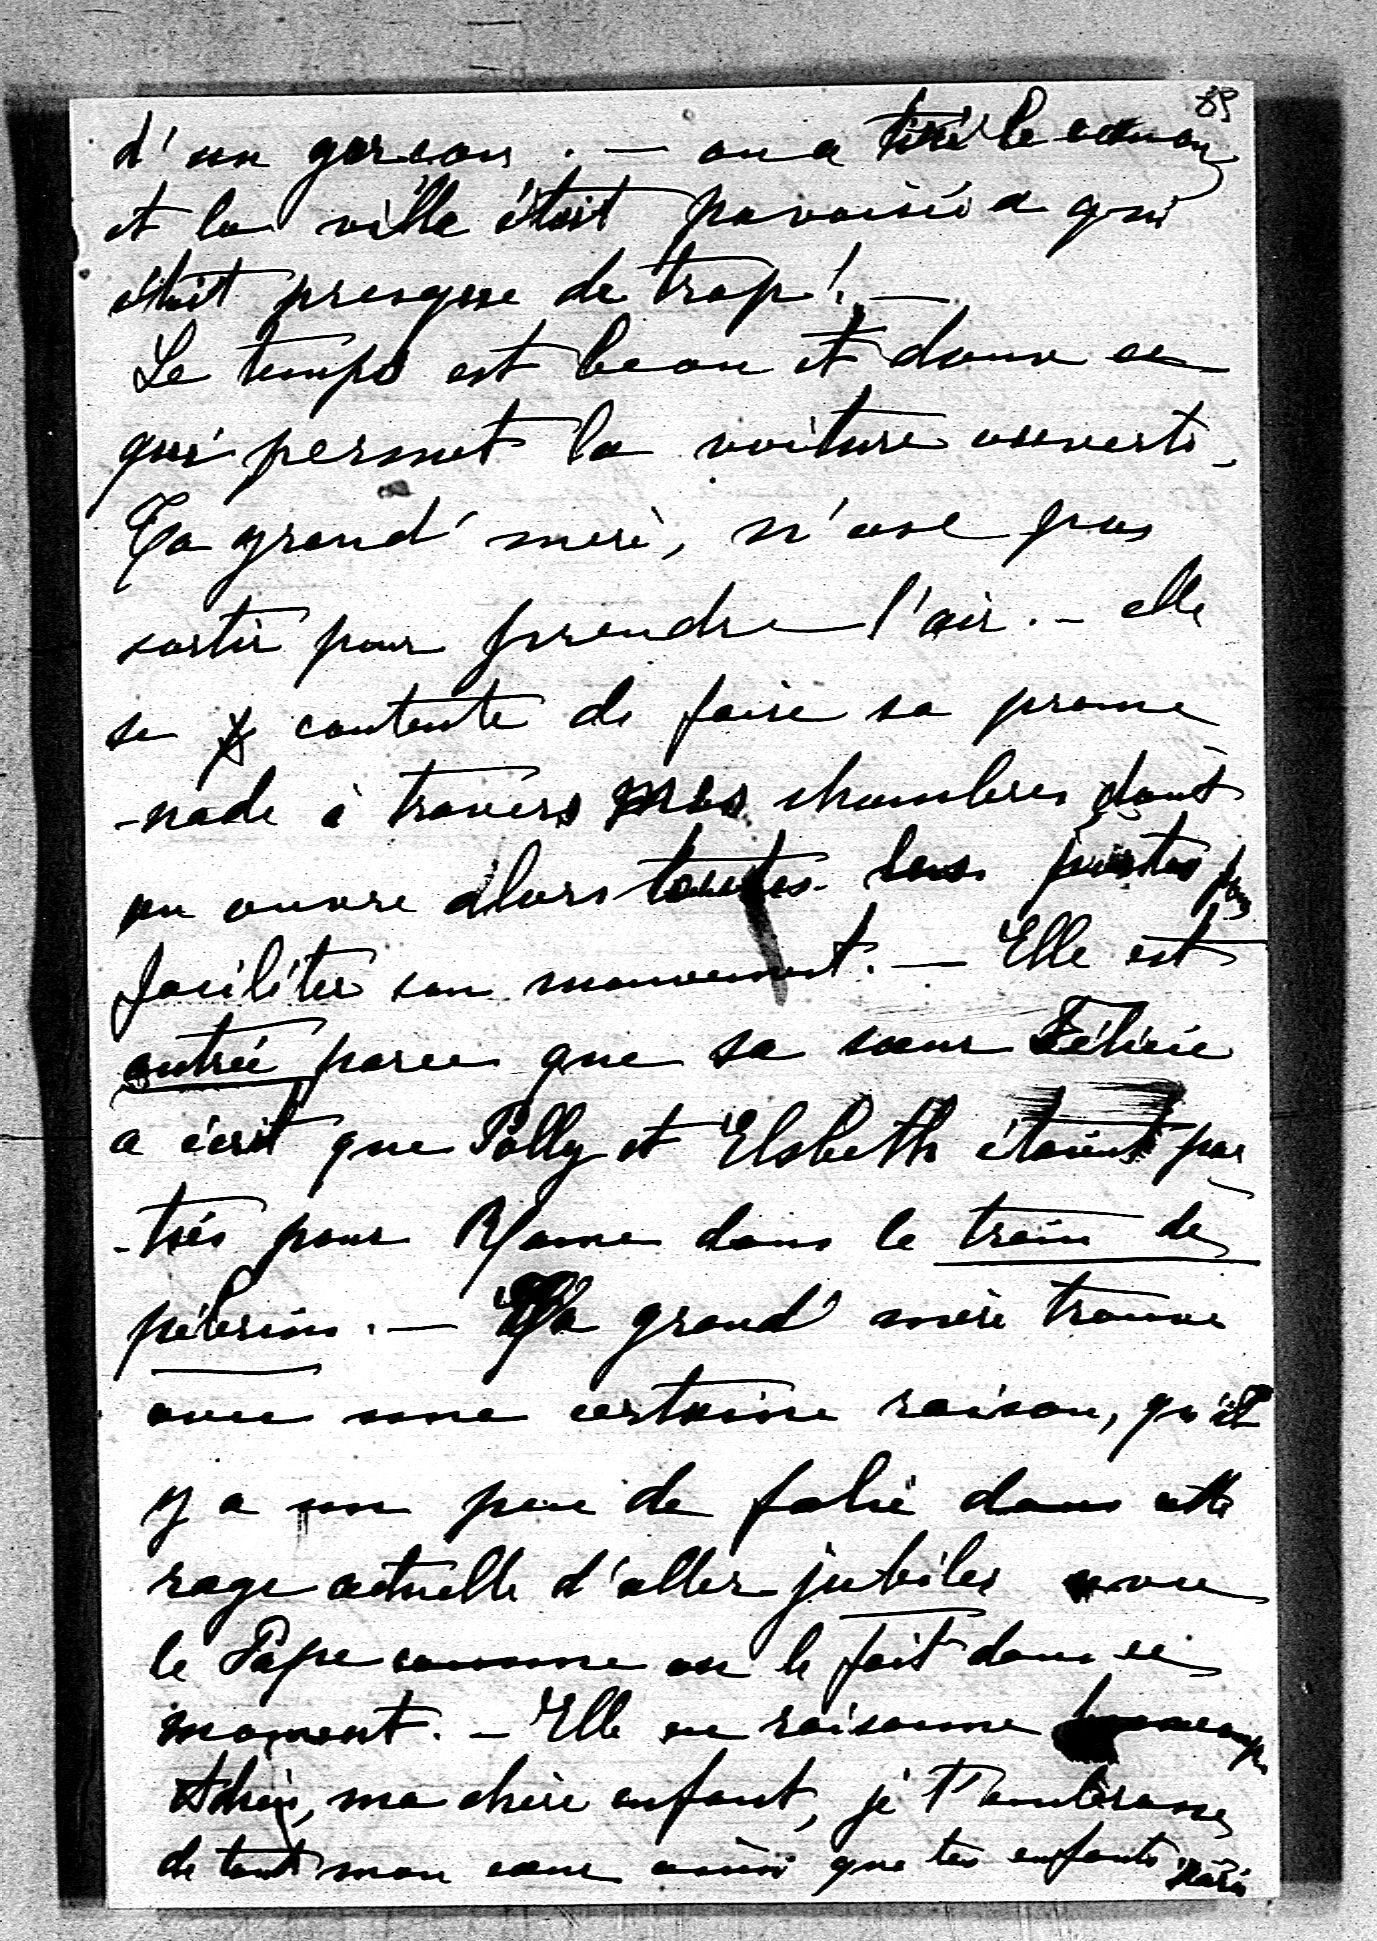 89
d'un garçon. — on a tiré le canon
et la ville était pavoisée ce qui
était presque de trop! —
Le temps est beau et doux ce
qui permet la voiture ouverte.
Ta grand' mère, n'ose pas
sortir pour prendre l'air. — elle
se contente de faire sa prome
-nade à travers mes chambres dont
on ouvre alors toutes les portes pour
faciliter son mouvement. — Elle est
outrée parce que sa sœur Félicie
a écrit que Polly et Elsbeth étaient par
-ties pour Rome dans le train de
pélerins. — Ta grand' mère trouve
avec une certaine raison, qu'il
y a un peu de folie dans cette
rage actuelle d'aller jubiler avec
le Pape comme on le fait dans ce
moment. — Elle en raisonne beaucoup
Adieu, ma chère enfant, je t'embrasse
de tout mon cœur ainsi que tes enfants